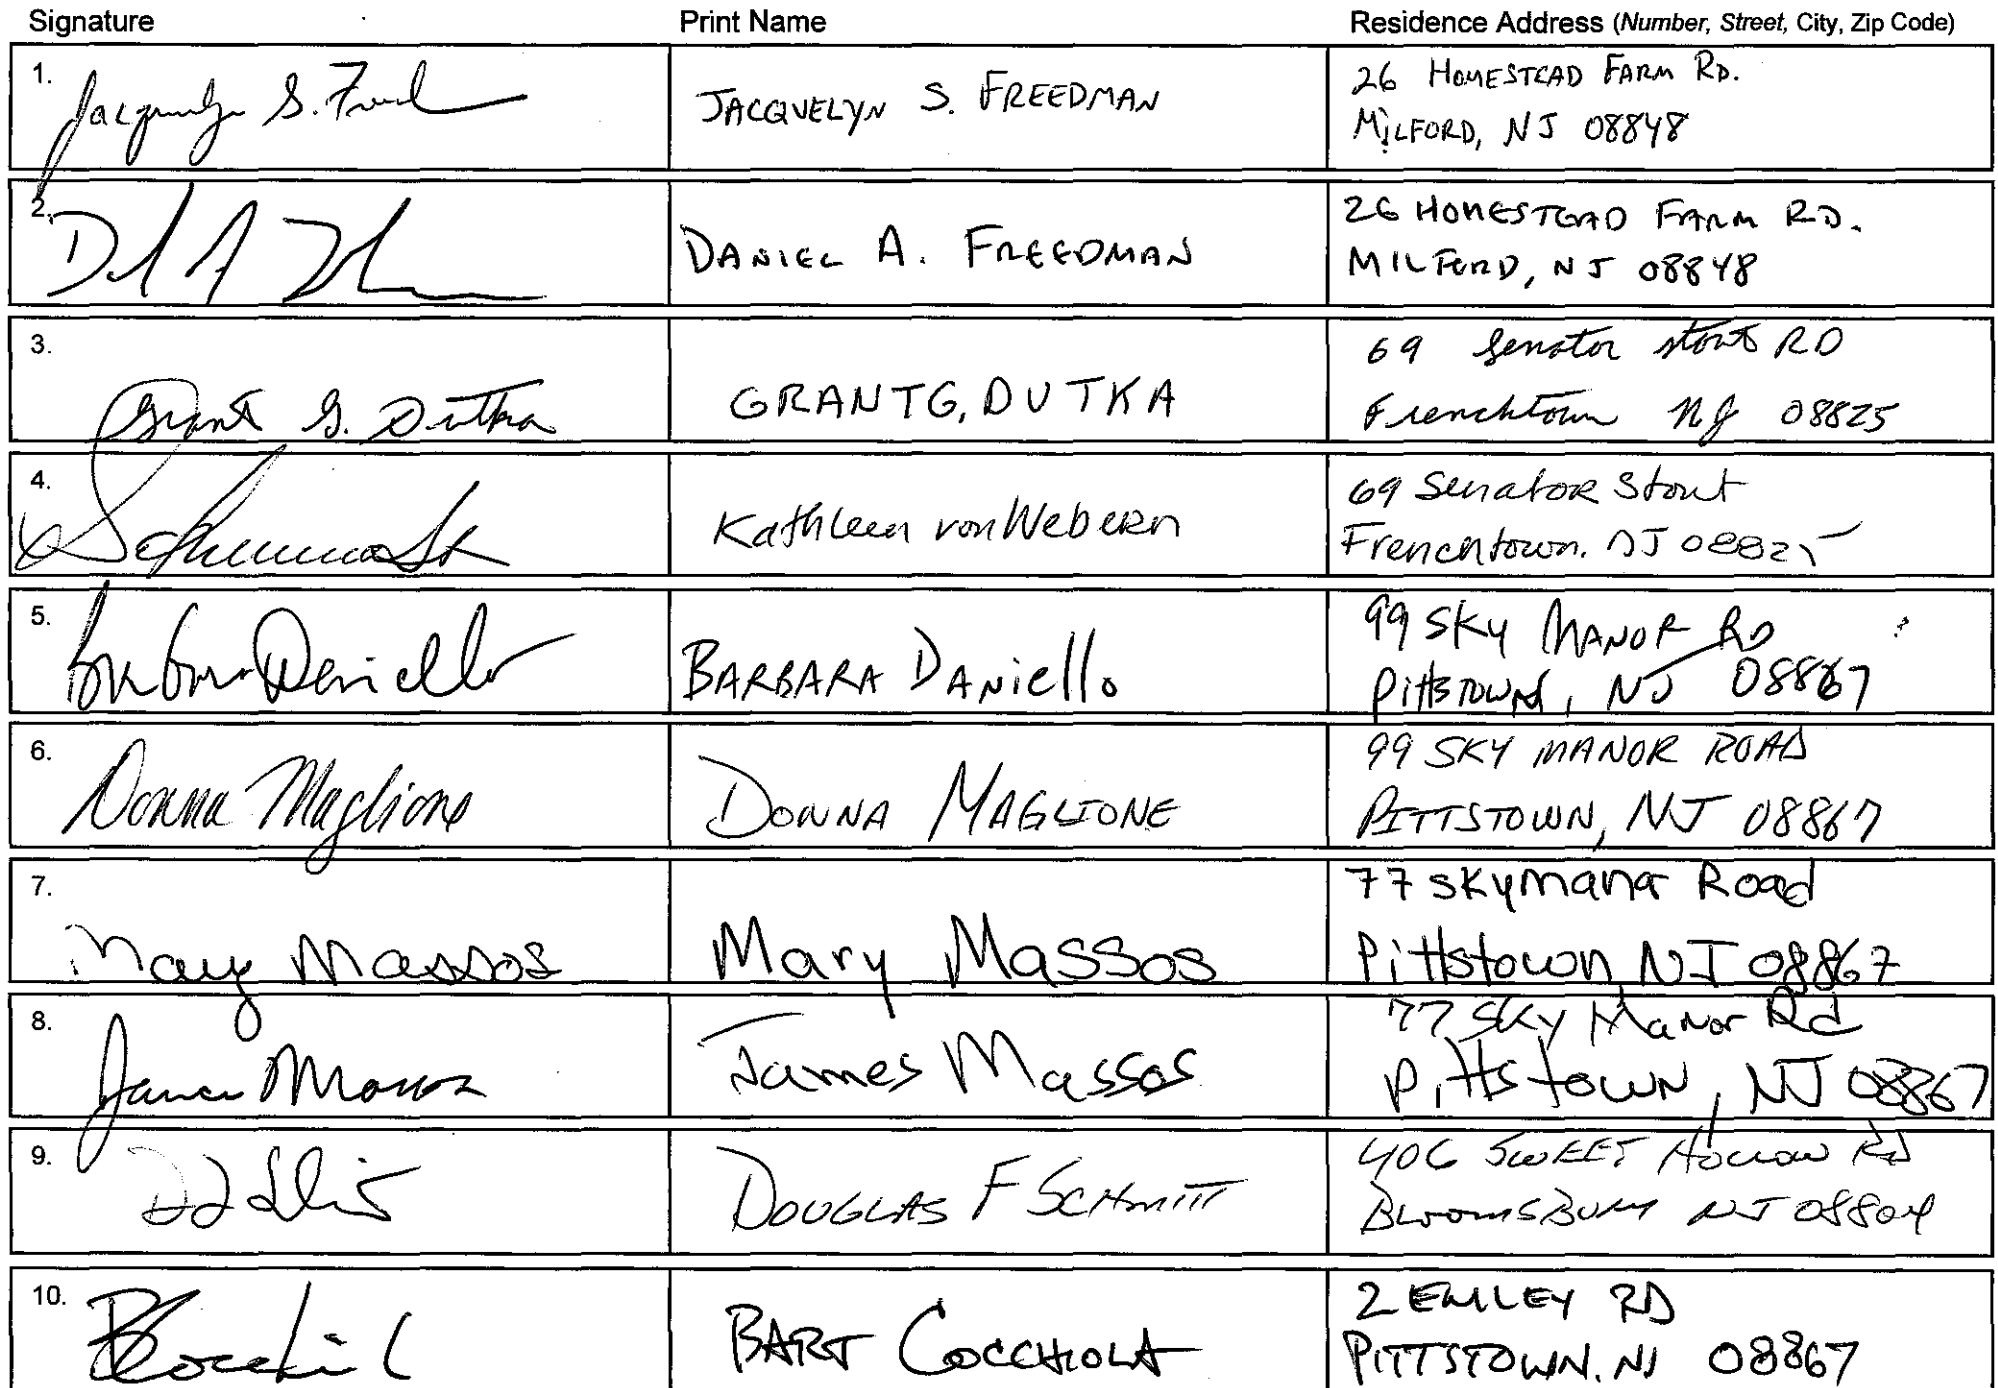 Signature Print Name Residence Address (Number, Street, City, Zip Code)
1. Jacquelyn S. Freed JACQUELYN S. FREEDMAN 26 HOMESTEAD FARM RD.
MILFORD, NJ 08848
2. DANIEL A. FREEDMAN 26 HOMESTEAD FARM RD.
MILFORD, NJ 08848
3. Grant G. Dutka GRANT G. DUTKA 69 Senator Stout RD
Frenchtown NJ 08825
4. Kathleen von Webern 69 Senator Stout
Frenchtown. NJ 08825
5. Barbara Daniello BARBARA DANiello 99 SKY MANOR RD
PittsTOWN, NJ 08867
6. Donna Maglione DONNA MAGLIONE 99 SKY MANOR ROAD
PITTSTOWN, NJ 08867
7. Mary Massos Mary Massos 77 skymanor Road
Pittstown, NJ 08867
8. James Massos James Massos 77 Sky Manor Rd
Pittstown, NJ 08867
9. DOUGLAS F SCHMITT 406 SWEET HOLLOW RD
BLOOMSBURY NJ 08804
10. BART COCCHIOLA 2 EMLEY RD
PITTSTOWN. NJ 08867